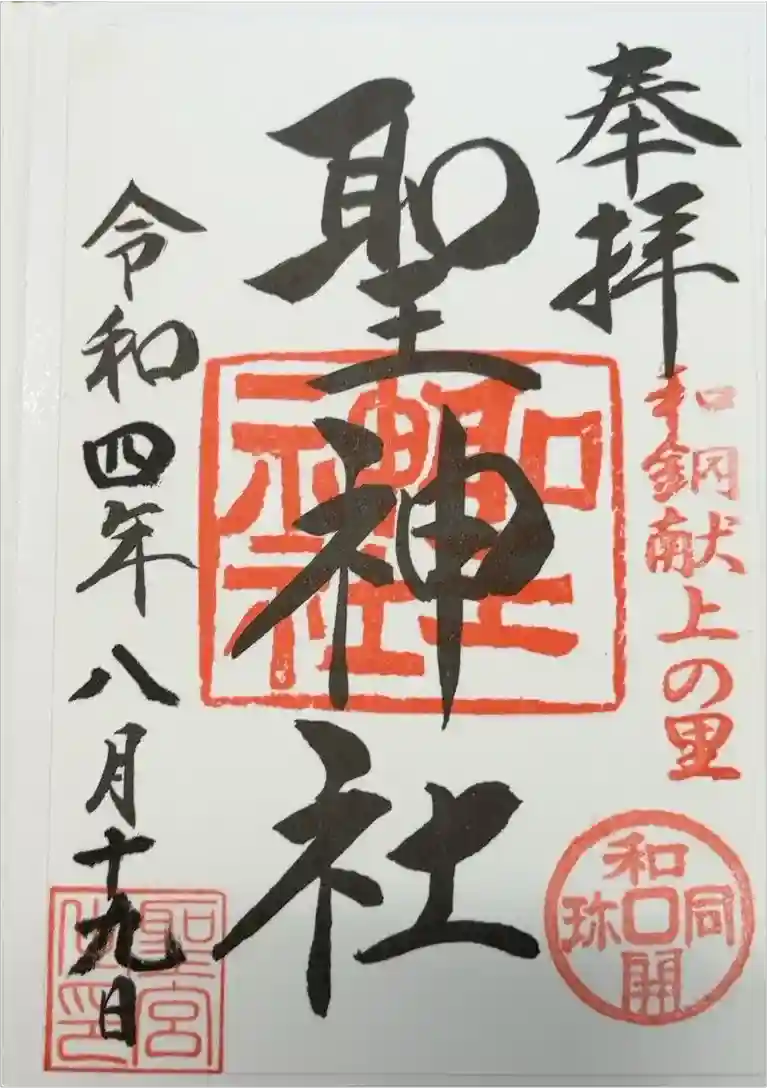 奉拝
和銅献上の里
和同開珎
聖神社
聖神社
令和四年八月十九日
聖宮